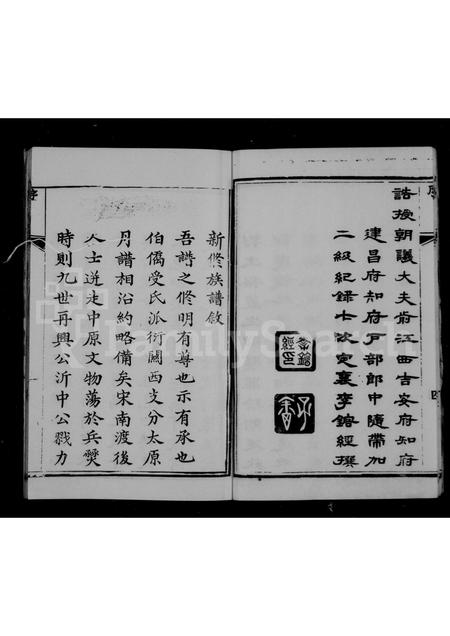 誥授朝議大夫前江西吉安府知府
建昌府知府戶部郎中隨帶加
二級紀錄十次定襄李鎔經撰
李鎔
經印
序
新修族譜敘
吾譜之修明有尊也示有承也
伯僑受氏派衍關西支分太原
丹譜相沿約略備矣宋南渡後
人士迸走中原文物蕩於兵燹
時則九世再興公沂中公戮力
序
FamilySearch